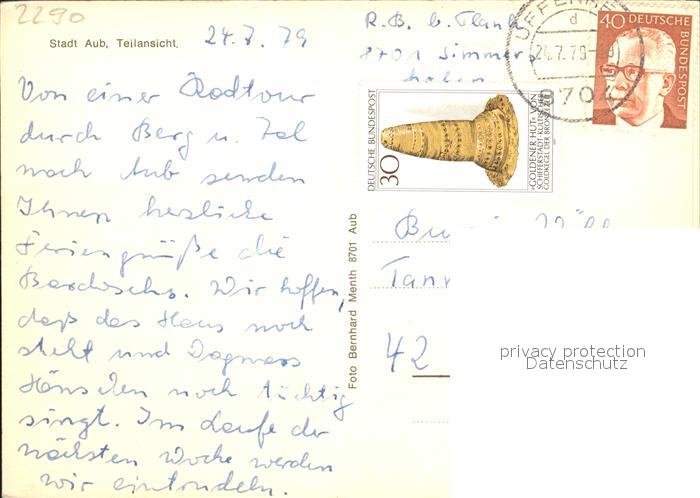 2290
Stadt Aub, Teilansicht.
24.7.79
Von einer Radtour
durch Berg u. Tal
nach Aub senden
Ihnen herzliche
Feriengrüße die
Wir hoffen,
daß das Haus noch
steht und Dagmars
Hänschen noch tüchtig
singt. Im Laufe der
nächsten Woche werden
wir eintrudeln.
Foto Bernhard Menth 8701 Aub
R.B. b. Plank
8701 Simmers
hofen
UFFENHEIM
d
24.7.79
870
40 DEUTSCHE
BUNDESPOST
DEUTSCHE BUNDESPOST
30
»GOLDENER HUT« VON
SCHIFFERSTADT · KULTISCHER
GOLDKEGEL DER BRONZEZEIT
42
privacy protection
Datenschutz